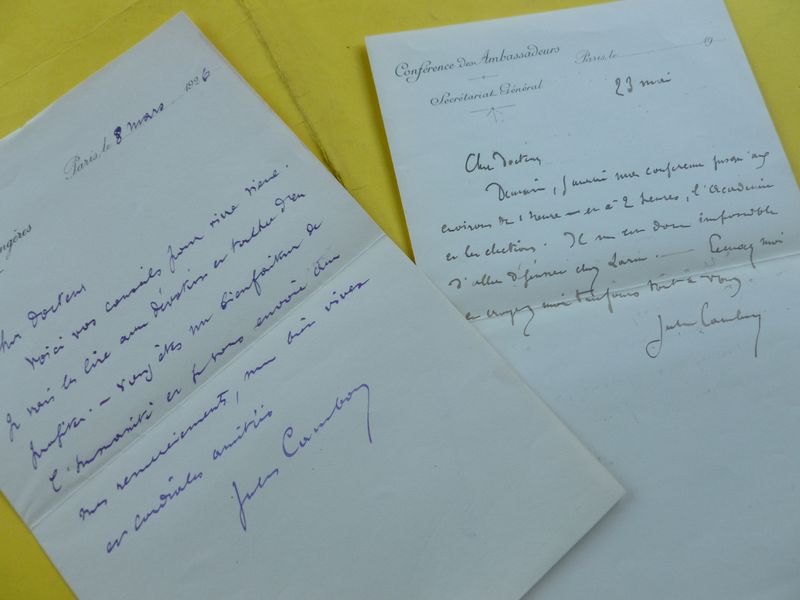 ngères
Paris, le 8 mars 1926
cher docteur
Voici vos conseils pour vivre vieux.
Je vais les lire avec dévotion et tâcher d'en
profiter. — Vous êtes un bienfaiteur de
l'humanité et je vous envoie avec
mes remerciements, mes bien vives
et cordiales amitiés
Jules Cambon
Conférence des Ambassadeurs
Secrétariat Général
Paris, le 19
23 mai
Cher Docteur,
Demain, j'aurai mes conférence jusqu'aux
environs de 1 heure — et à 2 heures, l'Académie
et les élections. Il m'est donc impossible
d'aller déjeuner chez — Excusez moi
et croyez moi toujours tout à vous.
Jules Cambon